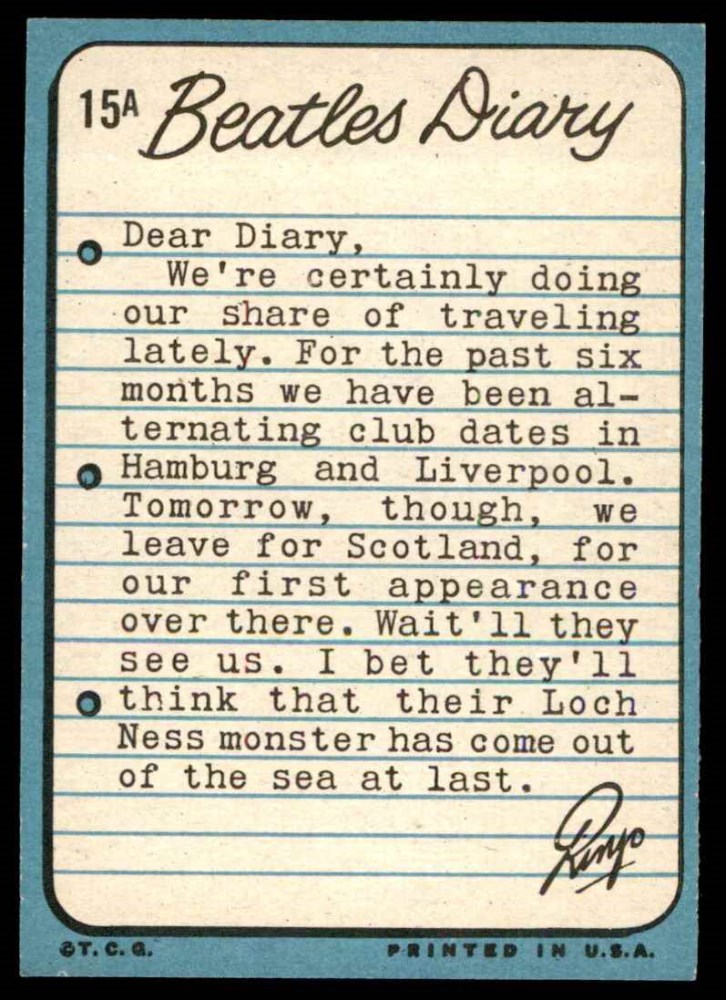 15A Beatles Diary
Dear Diary,
We're certainly doing
our share of traveling
lately. For the past six
months we have been al-
ternating club dates in
Hamburg and Liverpool.
Tomorrow, though, we
leave for Scotland, for
our first appearance
over there. Wait'll they
see us. I bet they'll
think that their Loch
Ness monster has come out
of the sea at last.
Ringo
©T.C.G. PRINTED IN U.S.A.